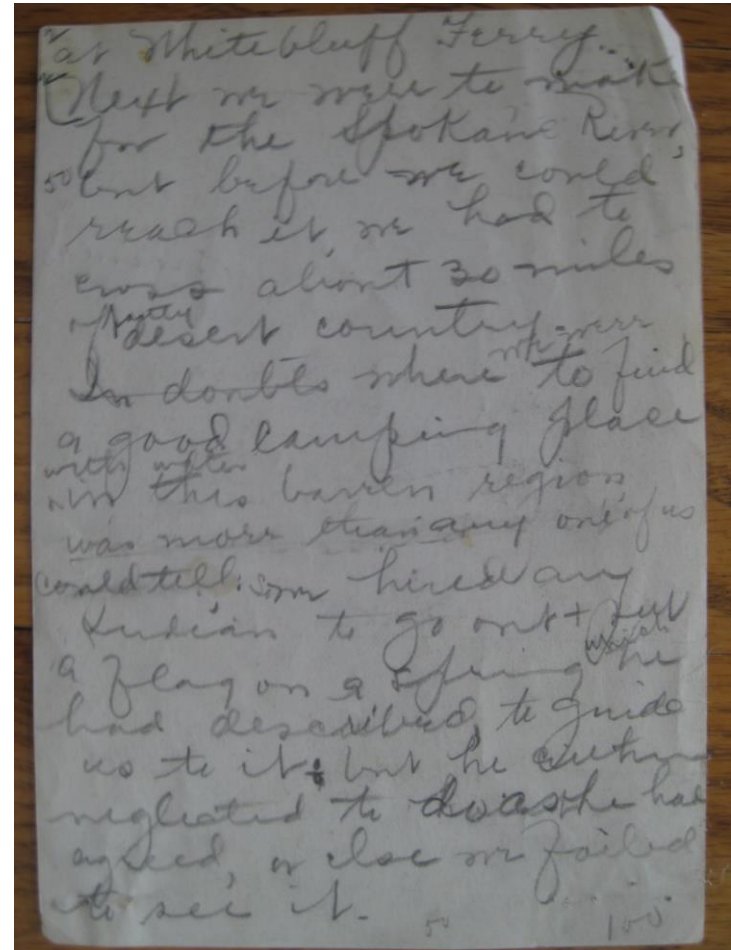 at Whitebluff Ferry.
Next we were to make
for the Spokane River,
50 but before we could
reach it, we had to
cross about 30 miles
of desert country. we were
In doubts where to find
a good camping place
with water
in this barren region
was more than any one of us
could tell. hired an
Indian to go out + put
a flag on a spring which he
had described, to guide
us to it but he either
neglected to do as he had
agreed, or else we failed
to see it.
50 100